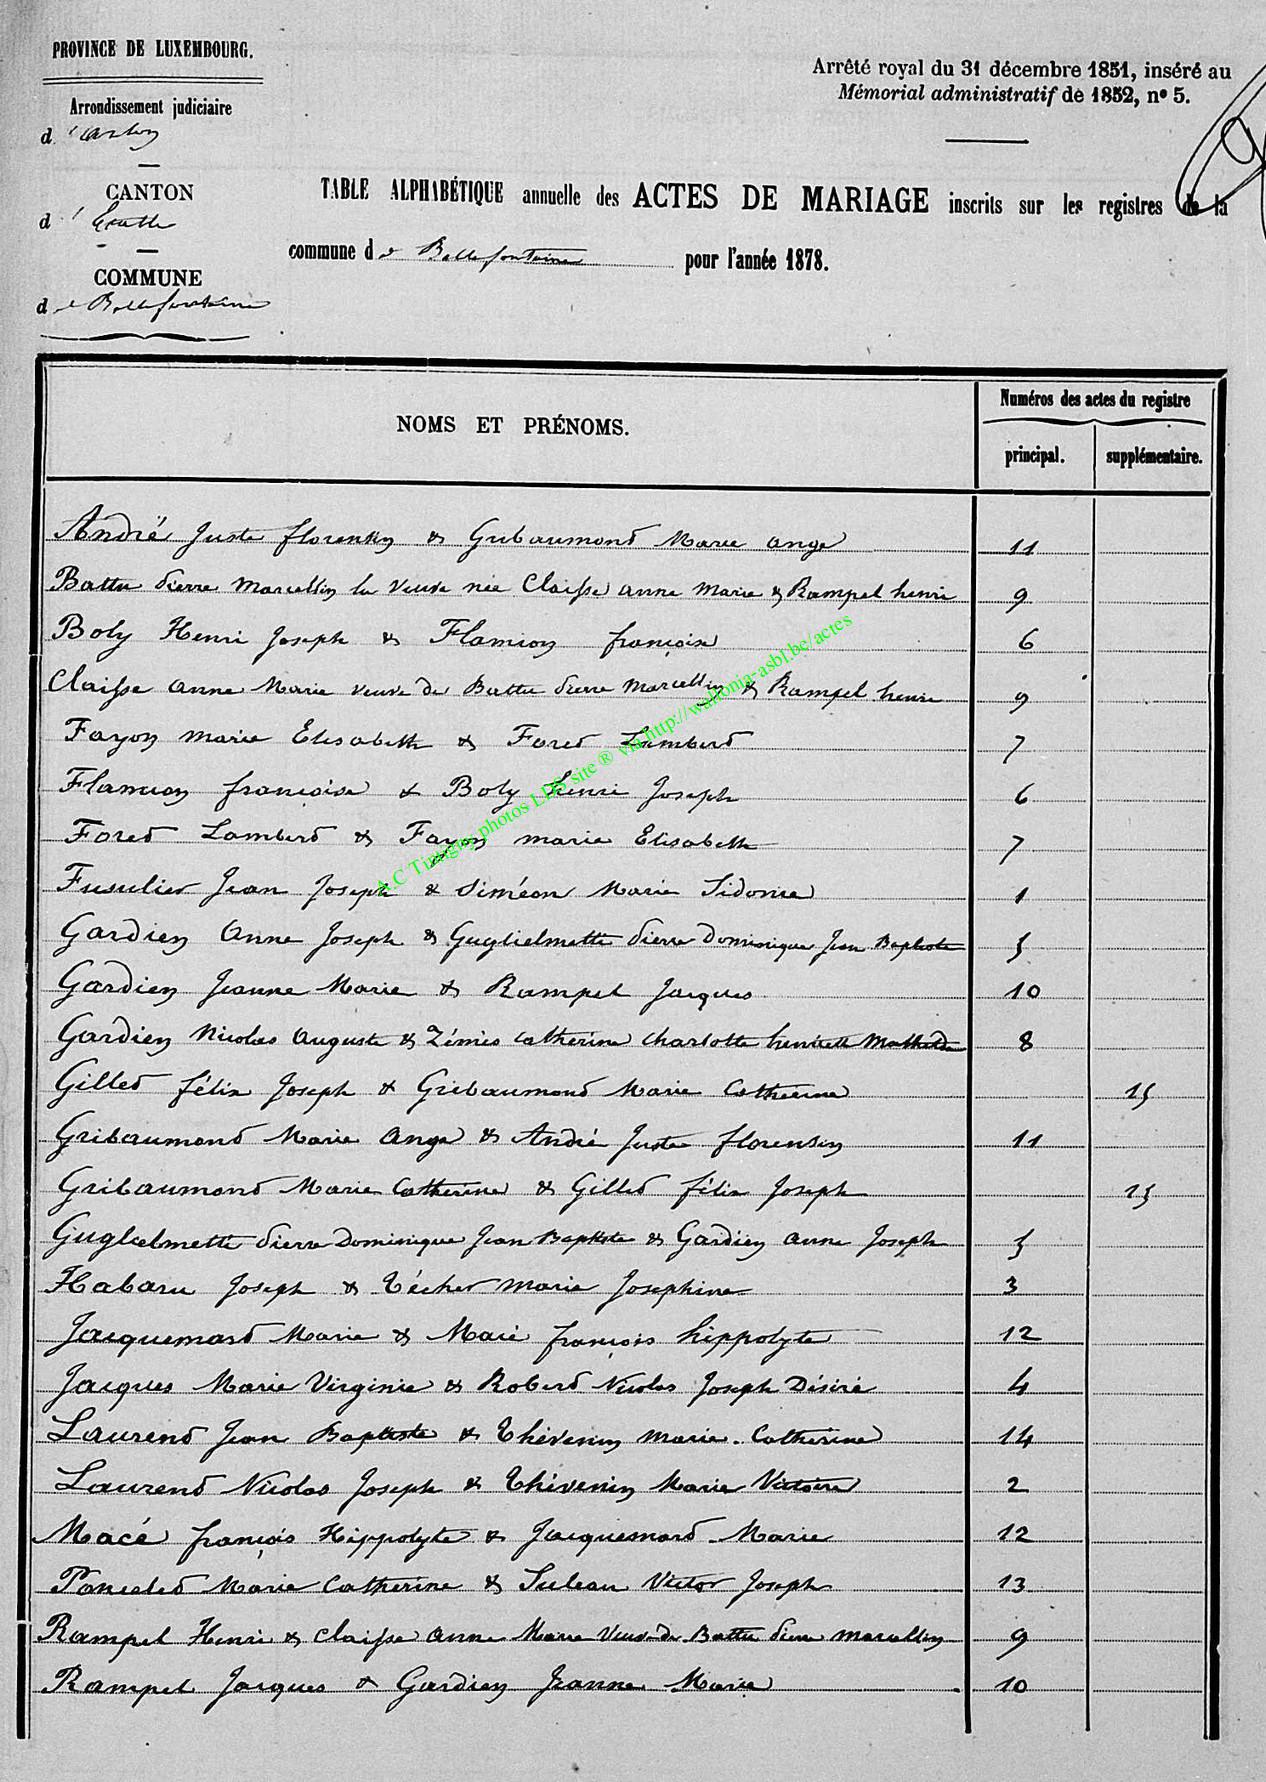 PROVINCE DE LUXEMBOURG.
Arrondissement judiciaire
d'Arlon
CANTON
d'Etalle
COMMUNE
de Bellefontaine
Arrêté royal du 31 décembre 1851, inséré au
Mémorial administratif de 1852, nº 5.
TABLE ALPHABÉTIQUE annuelle des ACTES DE MARIAGE inscrits sur les registres de la
commune de Bellefontaine pour l'année 1878.
NOMS ET PRÉNOMS.
Numéros des actes du registre
principal. supplémentaire.
André Juste florentin & Gribaumond Marie ange 11
Battu Pierre Marcellin la veuve née Claisse anne marie & Rampel henri 9
Boly Henri Joseph & Flamion françoise 6
Claisse anne Marie veuve de Battu Pierre Marcellin & Rampel henri 9
Fayon marie Elisabeth & Foret Lambert 7
Flamion françoise & Boly Henri Joseph 6
Foret Lambert & Fayon marie Elisabeth 7
Fusulier Jean Joseph & Siméon Marie Sidonie 1
Gardien Anne Joseph & Guglielmette Pierre Dominique Jean Baptiste 5
Gardien Jeanne Marie & Rampel Jacques 10
Gardien Nicolas Auguste & Zémès Catherine Charlotte henriette Mathilde 8
Gillet félix Joseph & Gribaumond Marie Catherine 15
Gribaumond Marie Ange & André Juste florentin 11
Gribaumond Marie Catherine & Gillet félix Joseph 15
Guglielmette Pierre Dominique Jean Baptiste & Gardien anne Joseph 5
Habaru Joseph & Técher marie Josephine 3
Jacquemard Marie & Macé françois hippolyte 12
Jacques Marie Virginie & Robert Nicolas Joseph Désiré 4
Laurent Jean Baptiste & Thévenin marie Catherine 14
Laurent Nicolas Joseph & Thévenin Marie Victoire 2
Macé françois Hippolyte & Jacquemard Marie 12
Poncelet Marie Catherine & Suleau Victor Joseph 13
Rampel Henri & Claisse anne Marie Veuve de Battu Pierre marcellin 9
Rampel Jacques & Gardien Jeanne Marie 10
A.C Tintigny photos LDS site ® via http://wallonia-asbl.be/actes